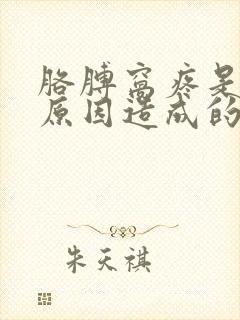 胳膊窝疼是
原因造成的
朱天祺